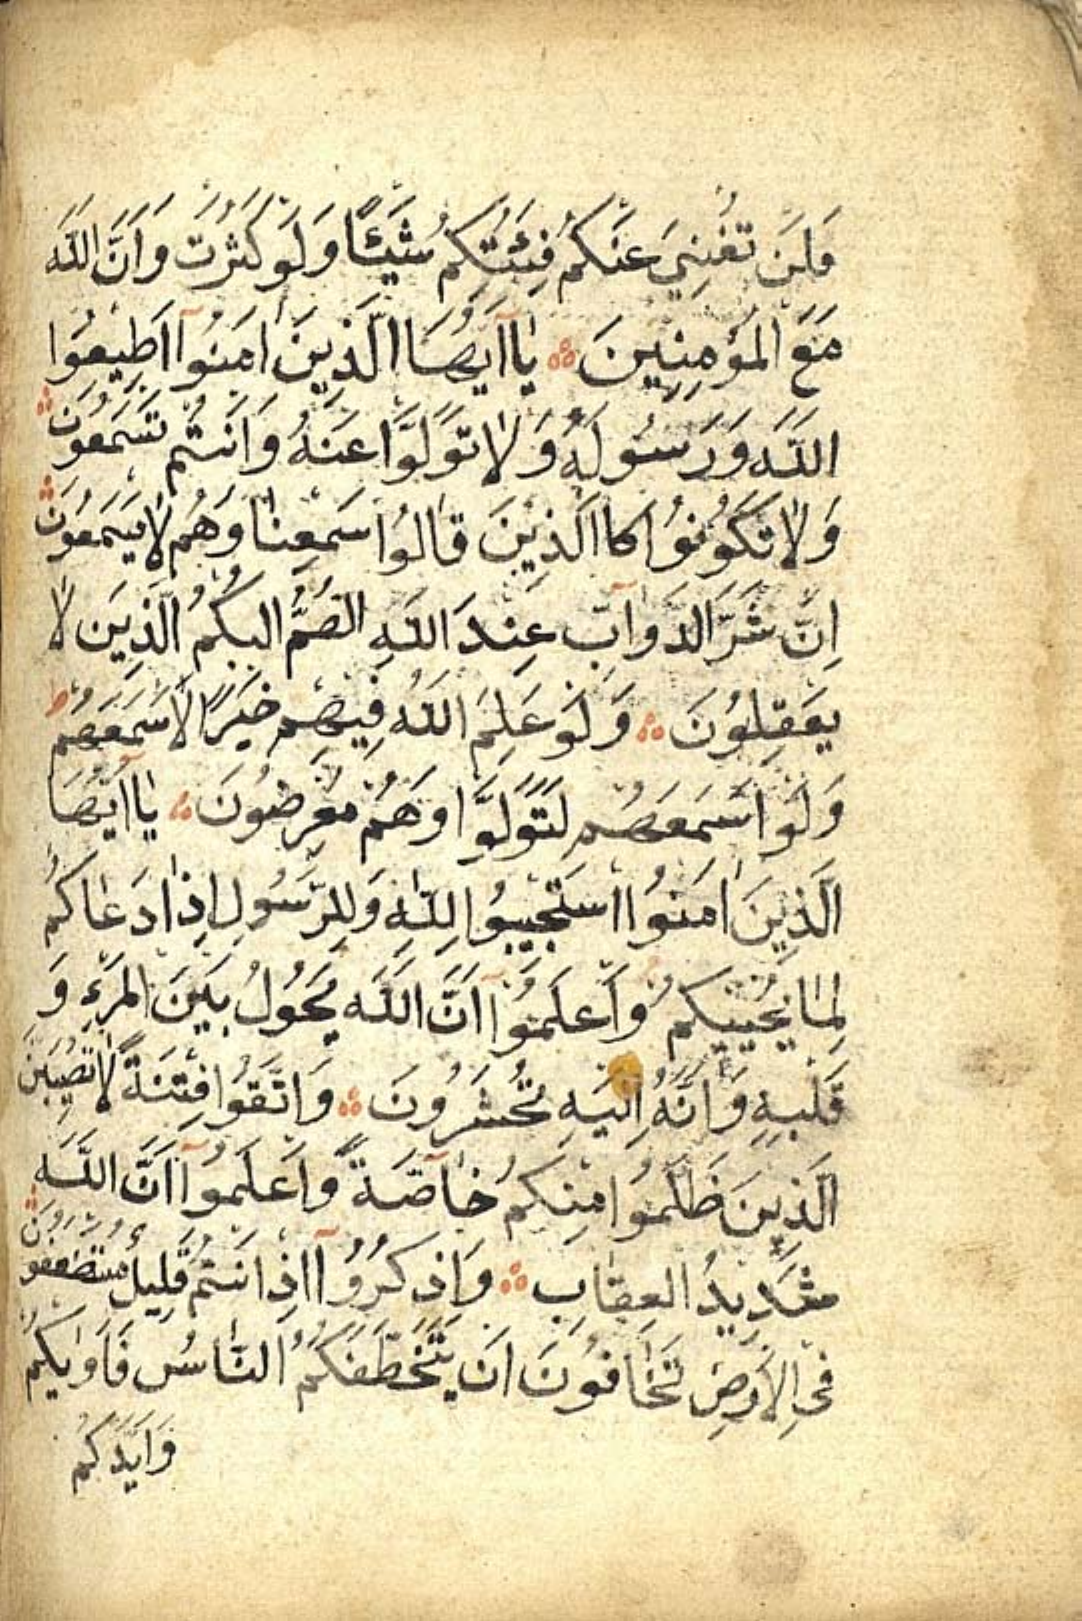 فَلَنْ تُغْنِيَ عَنْكُمْ فِئَتُكُمْ شَيْئًا وَلَوْ كَثُرَتْ وَاَنَّ اللّٰهَ
مَعَ الْمُؤْمِنِينَ يٰٓا اَيُّهَا الَّذِينَ اٰمَنُوٓا اَطِيعُوا
اللّٰهَ وَرَسُولَهُ وَلَا تَوَلَّوْا عَنْهُ وَاَنْتُمْ تَسْمَعُونَ
وَلَا تَكُونُوا كَاالَّذِينَ قَالُوا سَمِعْنَا وَهُمْ لَا يَسْمَعُونَ
اِنَّ شَرَّ الدَّوَآبِّ عِنْدَ اللّٰهِ الصُّمُّ الْبُكْمُ الَّذِينَ لَا
يَعْقِلُونَ وَلَوْ عَلِمَ اللّٰهُ فِيهِمْ خَيْرًا لَاَسْمَعَهُمْ ط
وَلَوْ اَسْمَعَهُمْ لَتَوَلَّوْا وَهُمْ مُعْرِضُونَ يٰٓا اَيُّهَا
الَّذِينَ اٰمَنُوا اسْتَجِيبُوا لِلّٰهِ وَلِلرَّسُولِ اِذَا دَعَاكُمْ
لِمَا يُحْيِيكُمْ وَاعْلَمُوٓا اَنَّ اللّٰهَ يَحُولُ بَيْنَ الْمَرْءِ وَ
قَلْبِهِ وَاَنَّهُ اِلَيْهِ تُحْشَرُونَ وَاتَّقُوا فِتْنَةً لَا تُصِيبَنَّ
الَّذِينَ ظَلَمُوا مِنْكُمْ خَآصَّةً وَاعْلَمُوٓا اَنَّ اللّٰهَ
شَدِيدُ الْعِقَابِ وَاذْكُرُوٓا اِذْ اَنْتُمْ قَلِيلٌ مُسْتَضْعَفُونَ
فِي الْاَرْضِ تَخَافُونَ اَنْ يَتَخَطَّفَكُمُ النَّاسُ فَاٰوٰيكُمْ
وَاَيَّدَكُمْ